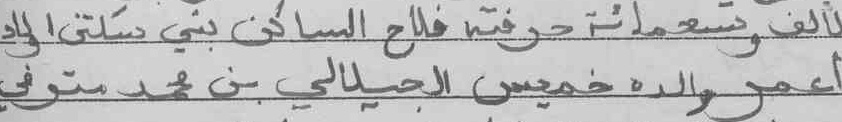 لألف وتسعمائة حرفته فلاح الساكن بني سكتن اولاد
اعمر والده خميس الجيلالي بن محمد متوفي